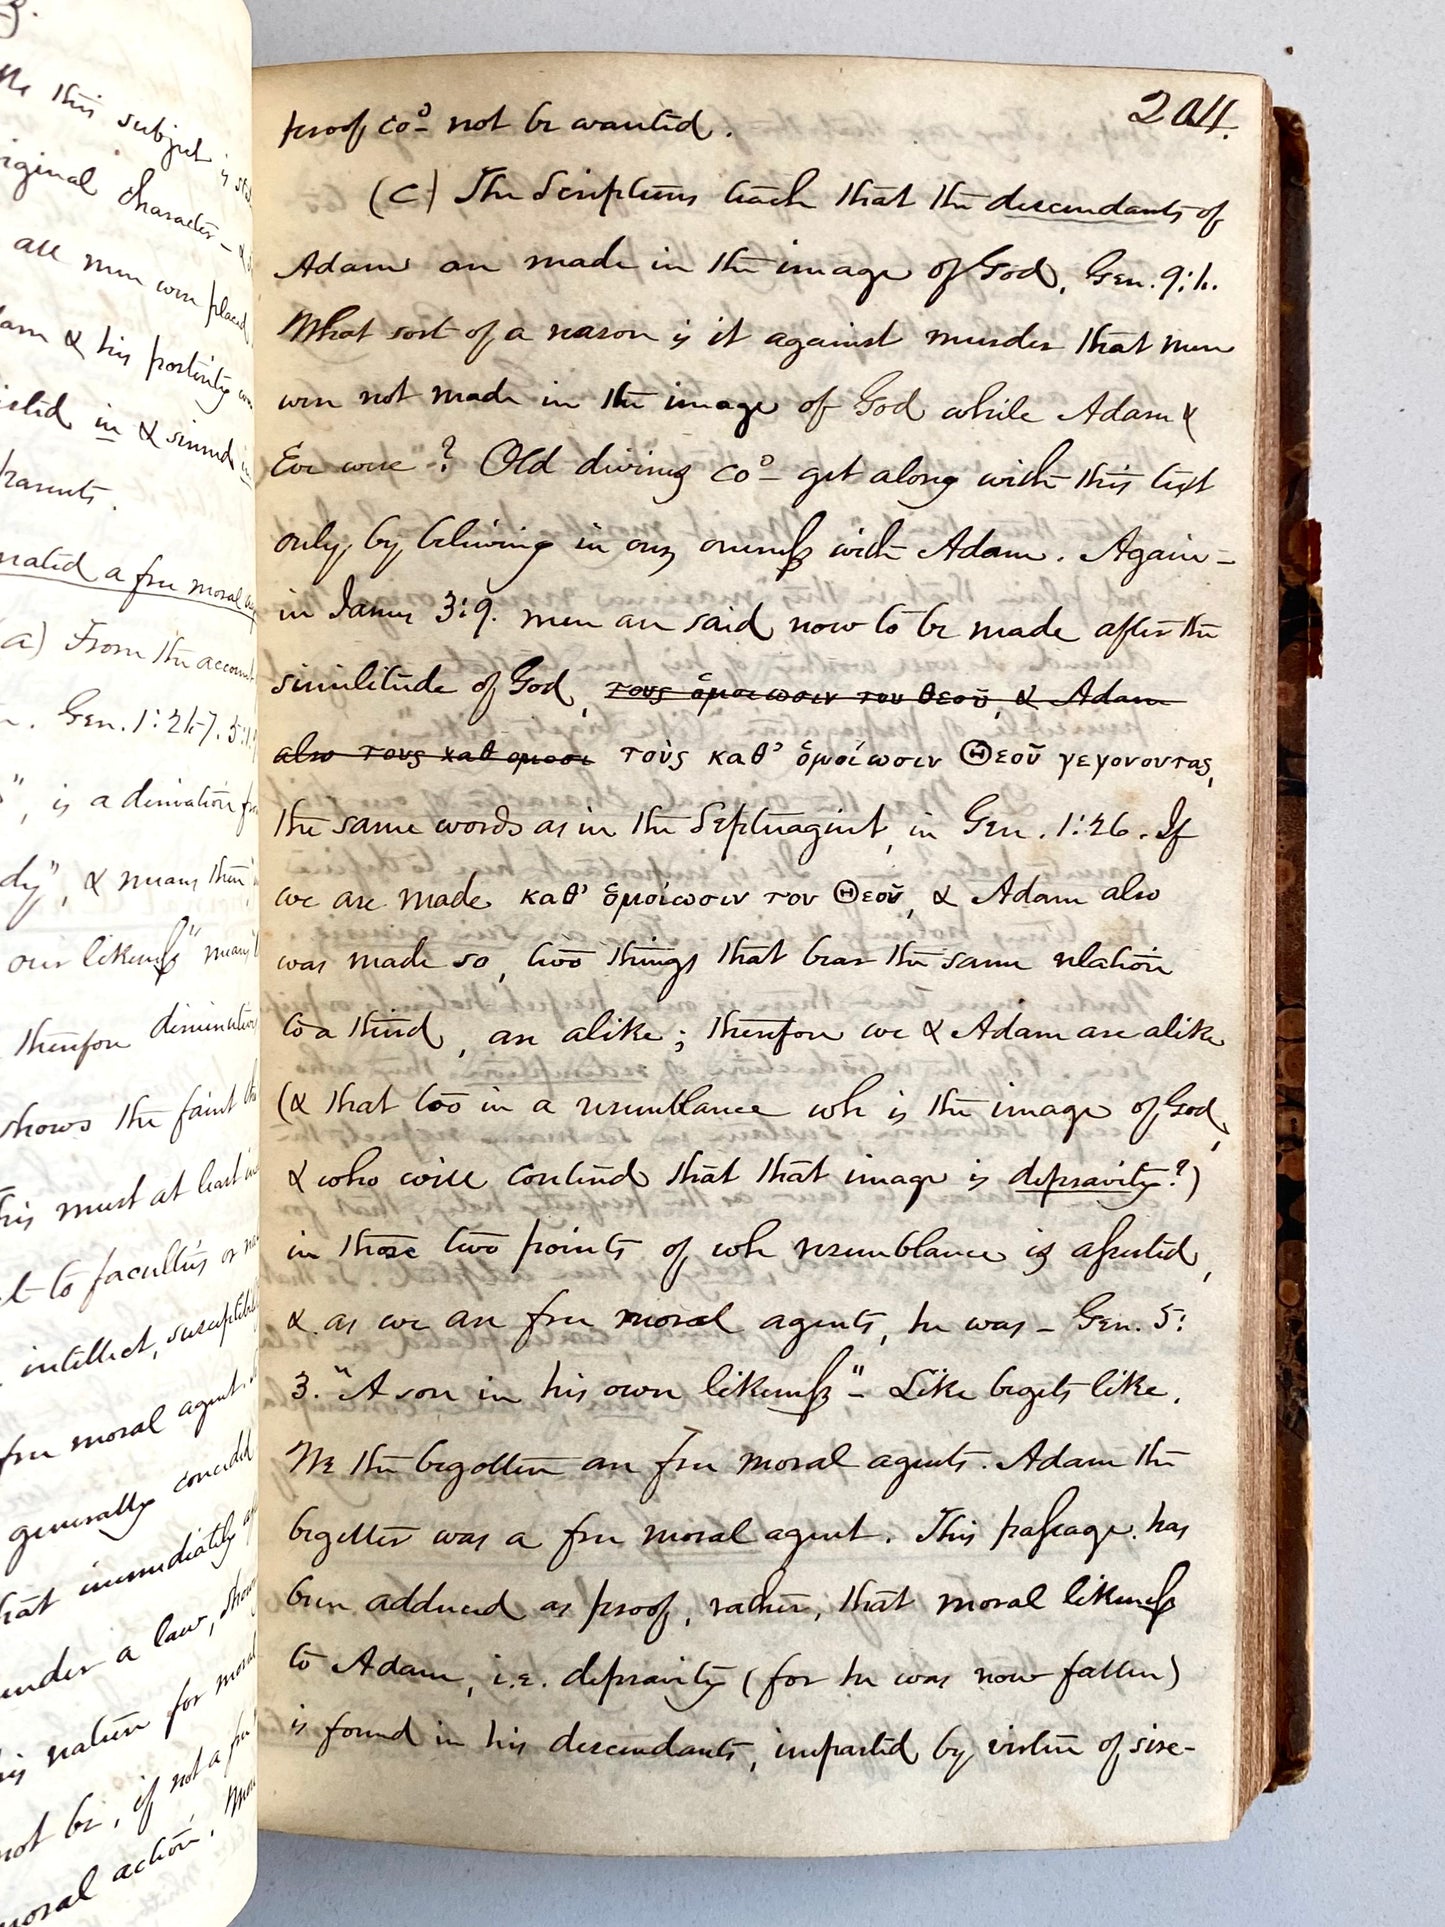 3.
this subject is
original character - &
all men were placed
Adam & his posterity
in & sinned in
parents.
created a free moral
(a) From the account
Gen. 1:26-7. 5:1.
", is a derivation
dy", & means then
our likeness" means
therefore
shows the faint
This must at least
to faculties or
intellect, susceptibi
free moral agent.
generally conceded
that immediately
under a law, show
his nature for moral
not be, if not a free
moral action. More
204.
proof co^d not be wanted.
(c) The Scriptures teach that the descendants of
Adam are made in the image of God, Gen. 9:6.
What sort of a reason is it against murder that men
were not made in the image of God while Adam &
Eve were? Old divines co^d get along with this text
only, by believing in our oneness with Adam. Again -
in James 3:9. men are said now to be made after the
similitude of God, τους ὁμοιωσιν του θεοῦ, & Adam
also τους καθ ομοσι τοὺς καθ' ὁμοίωσιν Θεοῦ γεγονοντας,
the same words as in the Septuagint, in Gen. 1:26. If
we are made καθ' ὁμοίωσιν του Θεοῦ, & Adam also
was made so, two things that bear the same relation
to a third, are alike; therefore we & Adam are alike
(& that too in a resemblance wh is the image of God,
& who will contend that that image is depravity?)
in those two points of wh resemblance is asserted,
& as we are free moral agents, he was - Gen. 5:
3. "A son in his own likeness" - Like begets like.
We the begotten are free moral agents. Adam the
begetter was a free moral agent. This passage has
been adduced as proof, rather, that moral likeness
to Adam, i.e. depravity (for he was now fallen)
is found in his descendants, imparted by virtue of sire-